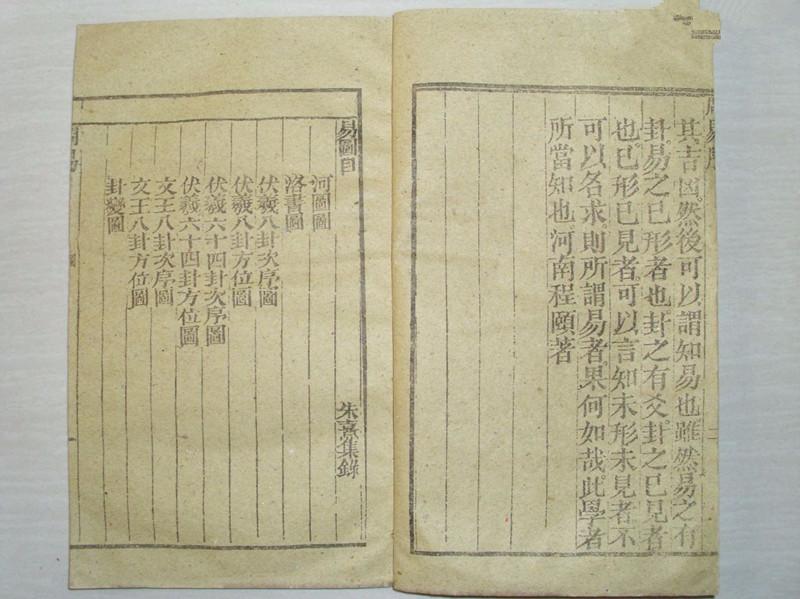 周易序
其吉凶然後可以謂知易也雖然易之有
卦易之已形者也卦之有爻卦之已見者
也已形已見者可以言知未形未見者不
可以名求則所謂易者果何如哉此學者
所當知也河南程頤著
易圖目
朱熹集錄
河圖圖
洛書圖
伏羲八卦次序圖
伏羲八卦方位圖
伏羲六十四卦次序圖
伏羲六十四卦方位圖
文王八卦次序圖
文王八卦方位圖
卦變圖
周易